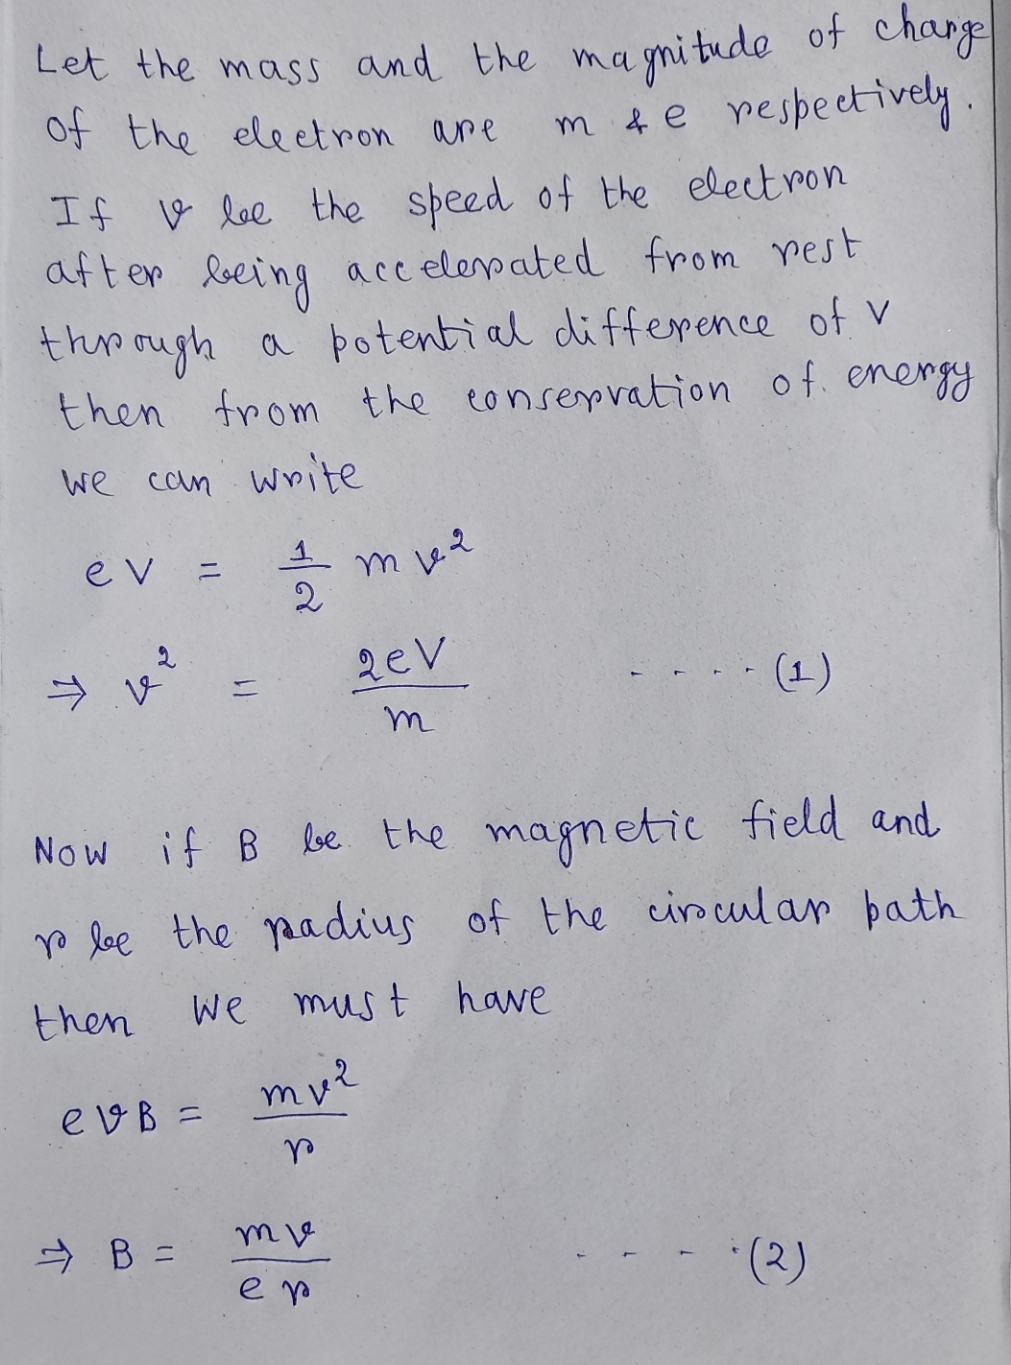 Let the mass and the magnitude of charge
of the electron are m & e respectively.
If v be the speed of the electron
after being accelerated from rest
through a potential difference of V
then from the conservation of energy
we can write
eV = 1/2 mv²
⇒ v² = 2eV/m ....(1)
Now if B be the magnetic field and
r be the radius of the circular path
then we must have
evB = mv²/r
⇒ B = mv/er ....(2)